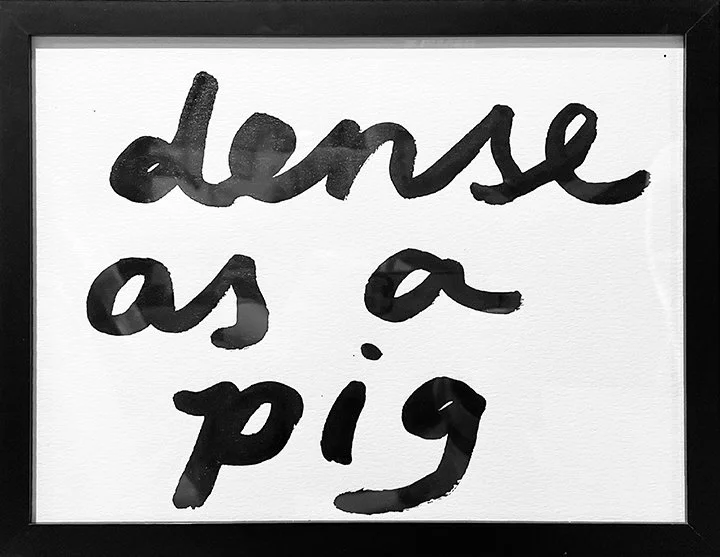 dense
as a
pig